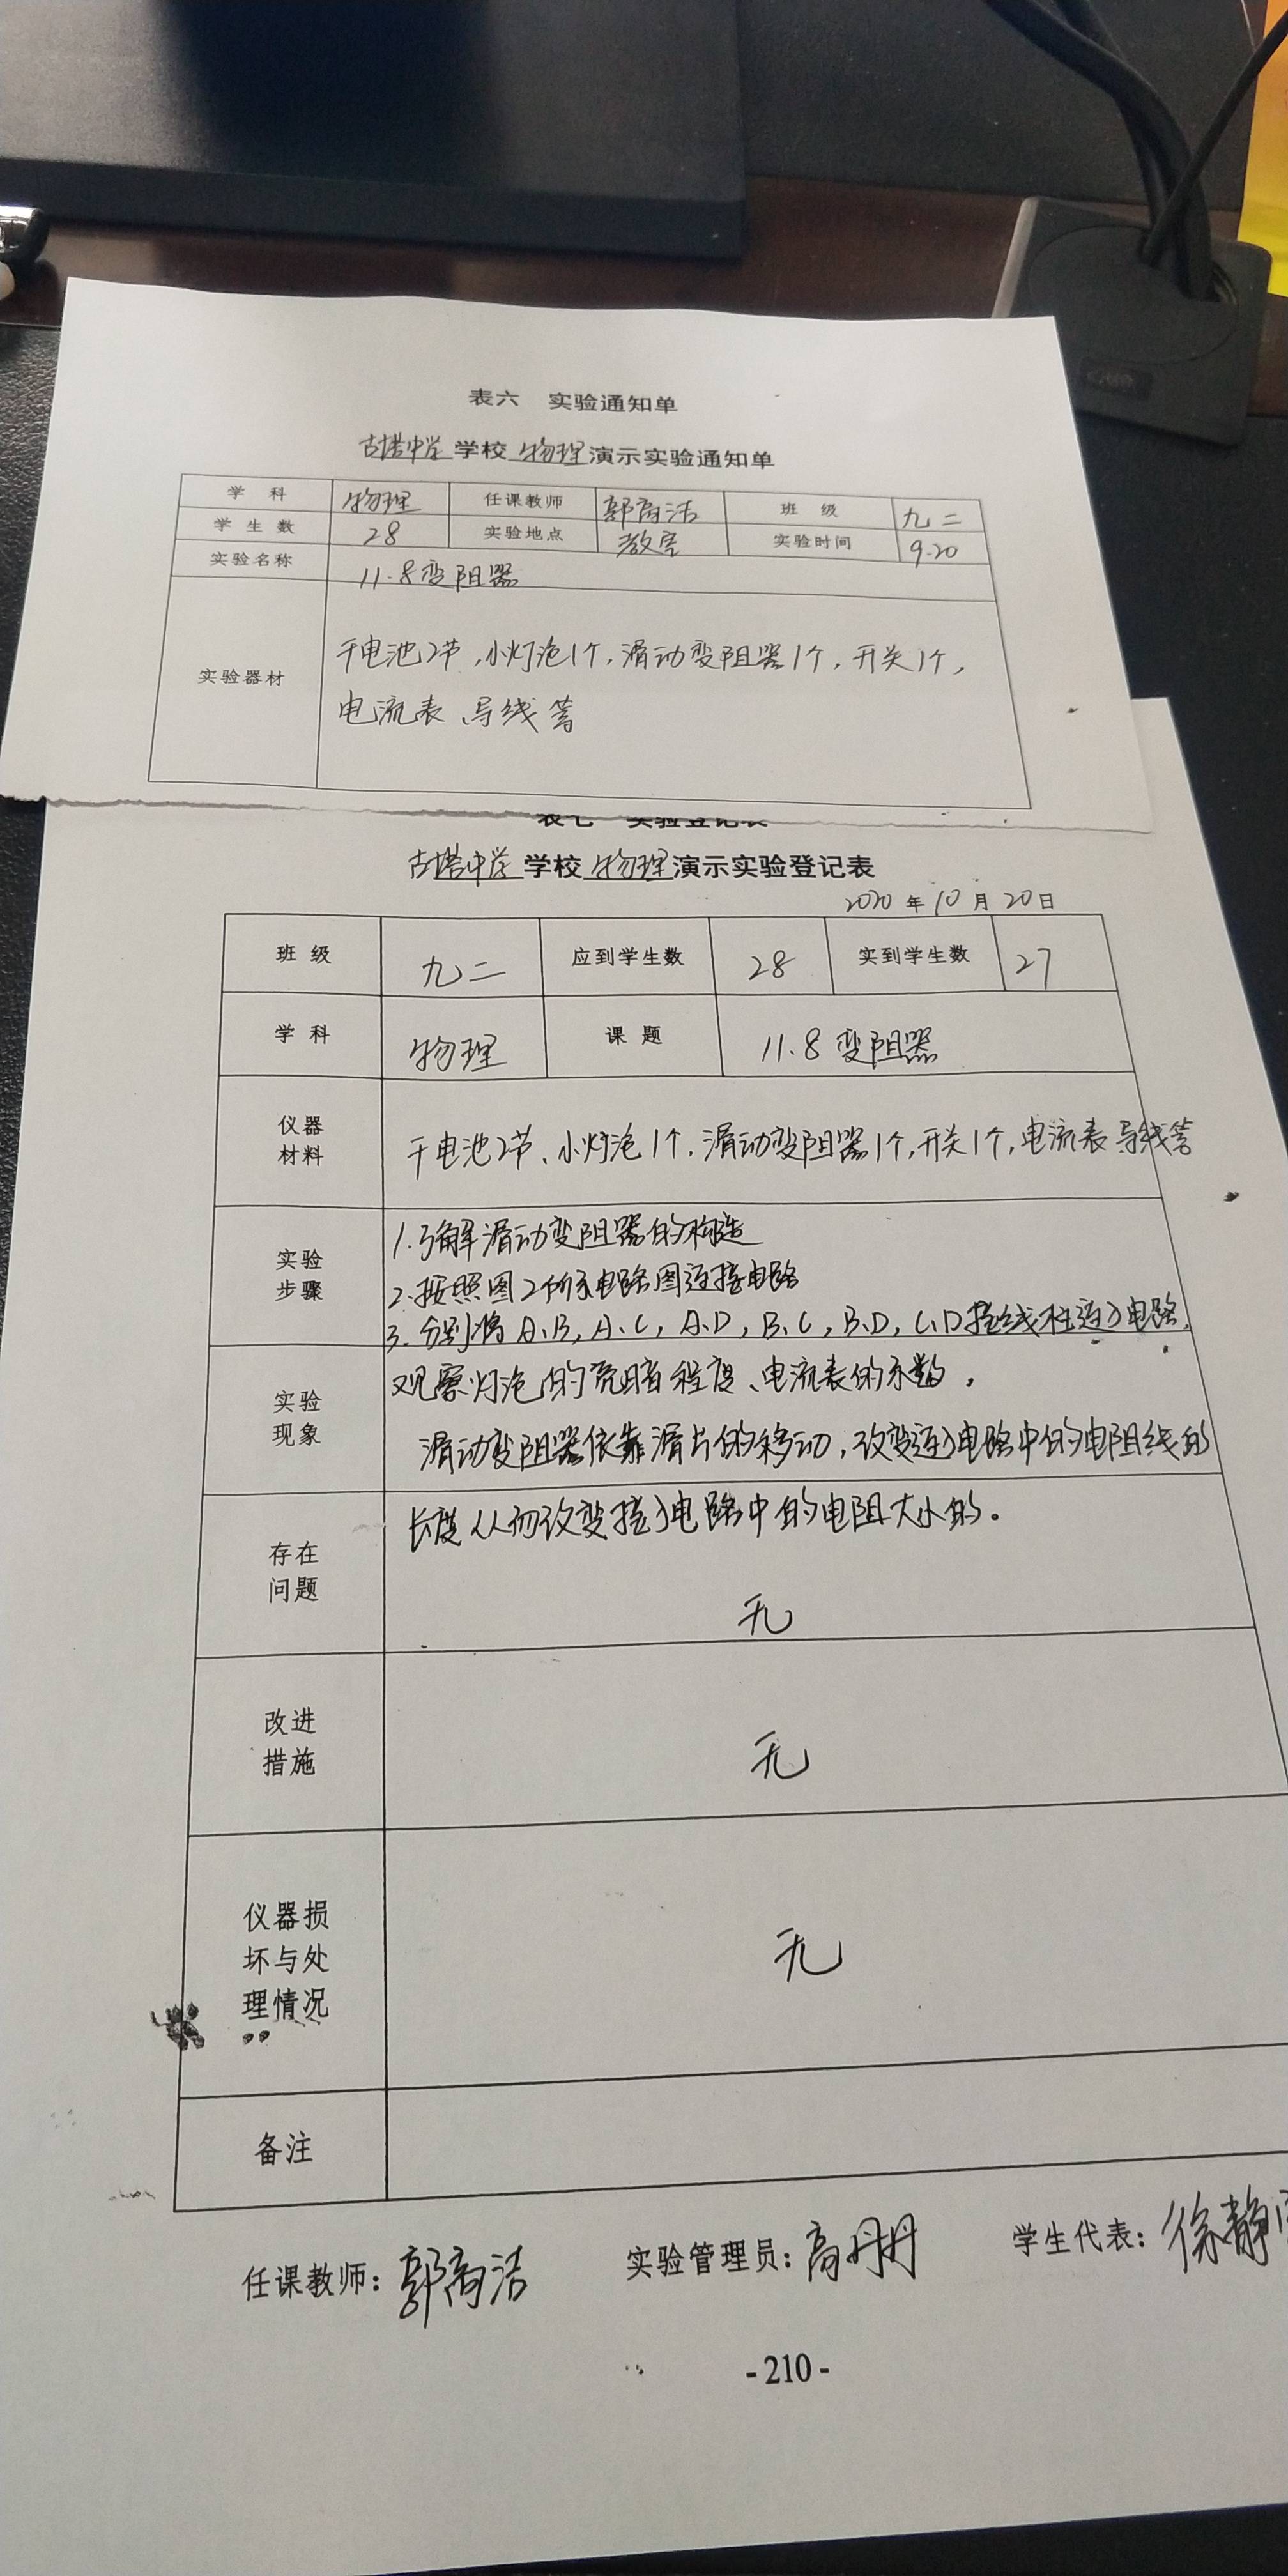 表六 实验通知单
古塔中学学校物理演示实验通知单
学 科 物理 任课教师 郭商洁 班 级 九二
学生数 28 实验地点 教室 实验时间 9.20
实验名称 11.8变阻器
实验器材
干电池2节,小灯泡1个,滑动变阻器1个,开关1个,
电流表、导线等
表七 实验登记表
古塔中学学校物理演示实验登记表
2020年10月20日
班 级 九二 应到学生数 28 实到学生数 27
学 科 物理 课 题 11.8 变阻器
仪器
材料
干电池2节、小灯泡1个,滑动变阻器1个,开关1个,电流表 导线等
实验
步骤
1.了解滑动变阻器的构造
2.按照图2所示电路图连接电路
3.分别将A、B,A、C,A、D,B、C,B、D,C、D接线柱连入电路,
观察灯泡的亮暗程度、电流表的示数。
实验
现象
滑动变阻器依靠滑片的移动,改变连入电路中的电阻线的
长度从而改变接入电路中的电阻大小的。
存在
问题
无
改进
措施
无
仪器损
坏与处
理情况
无
备注
任课教师:郭商洁 实验管理员:高丹丹 学生代表:徐静
-210-